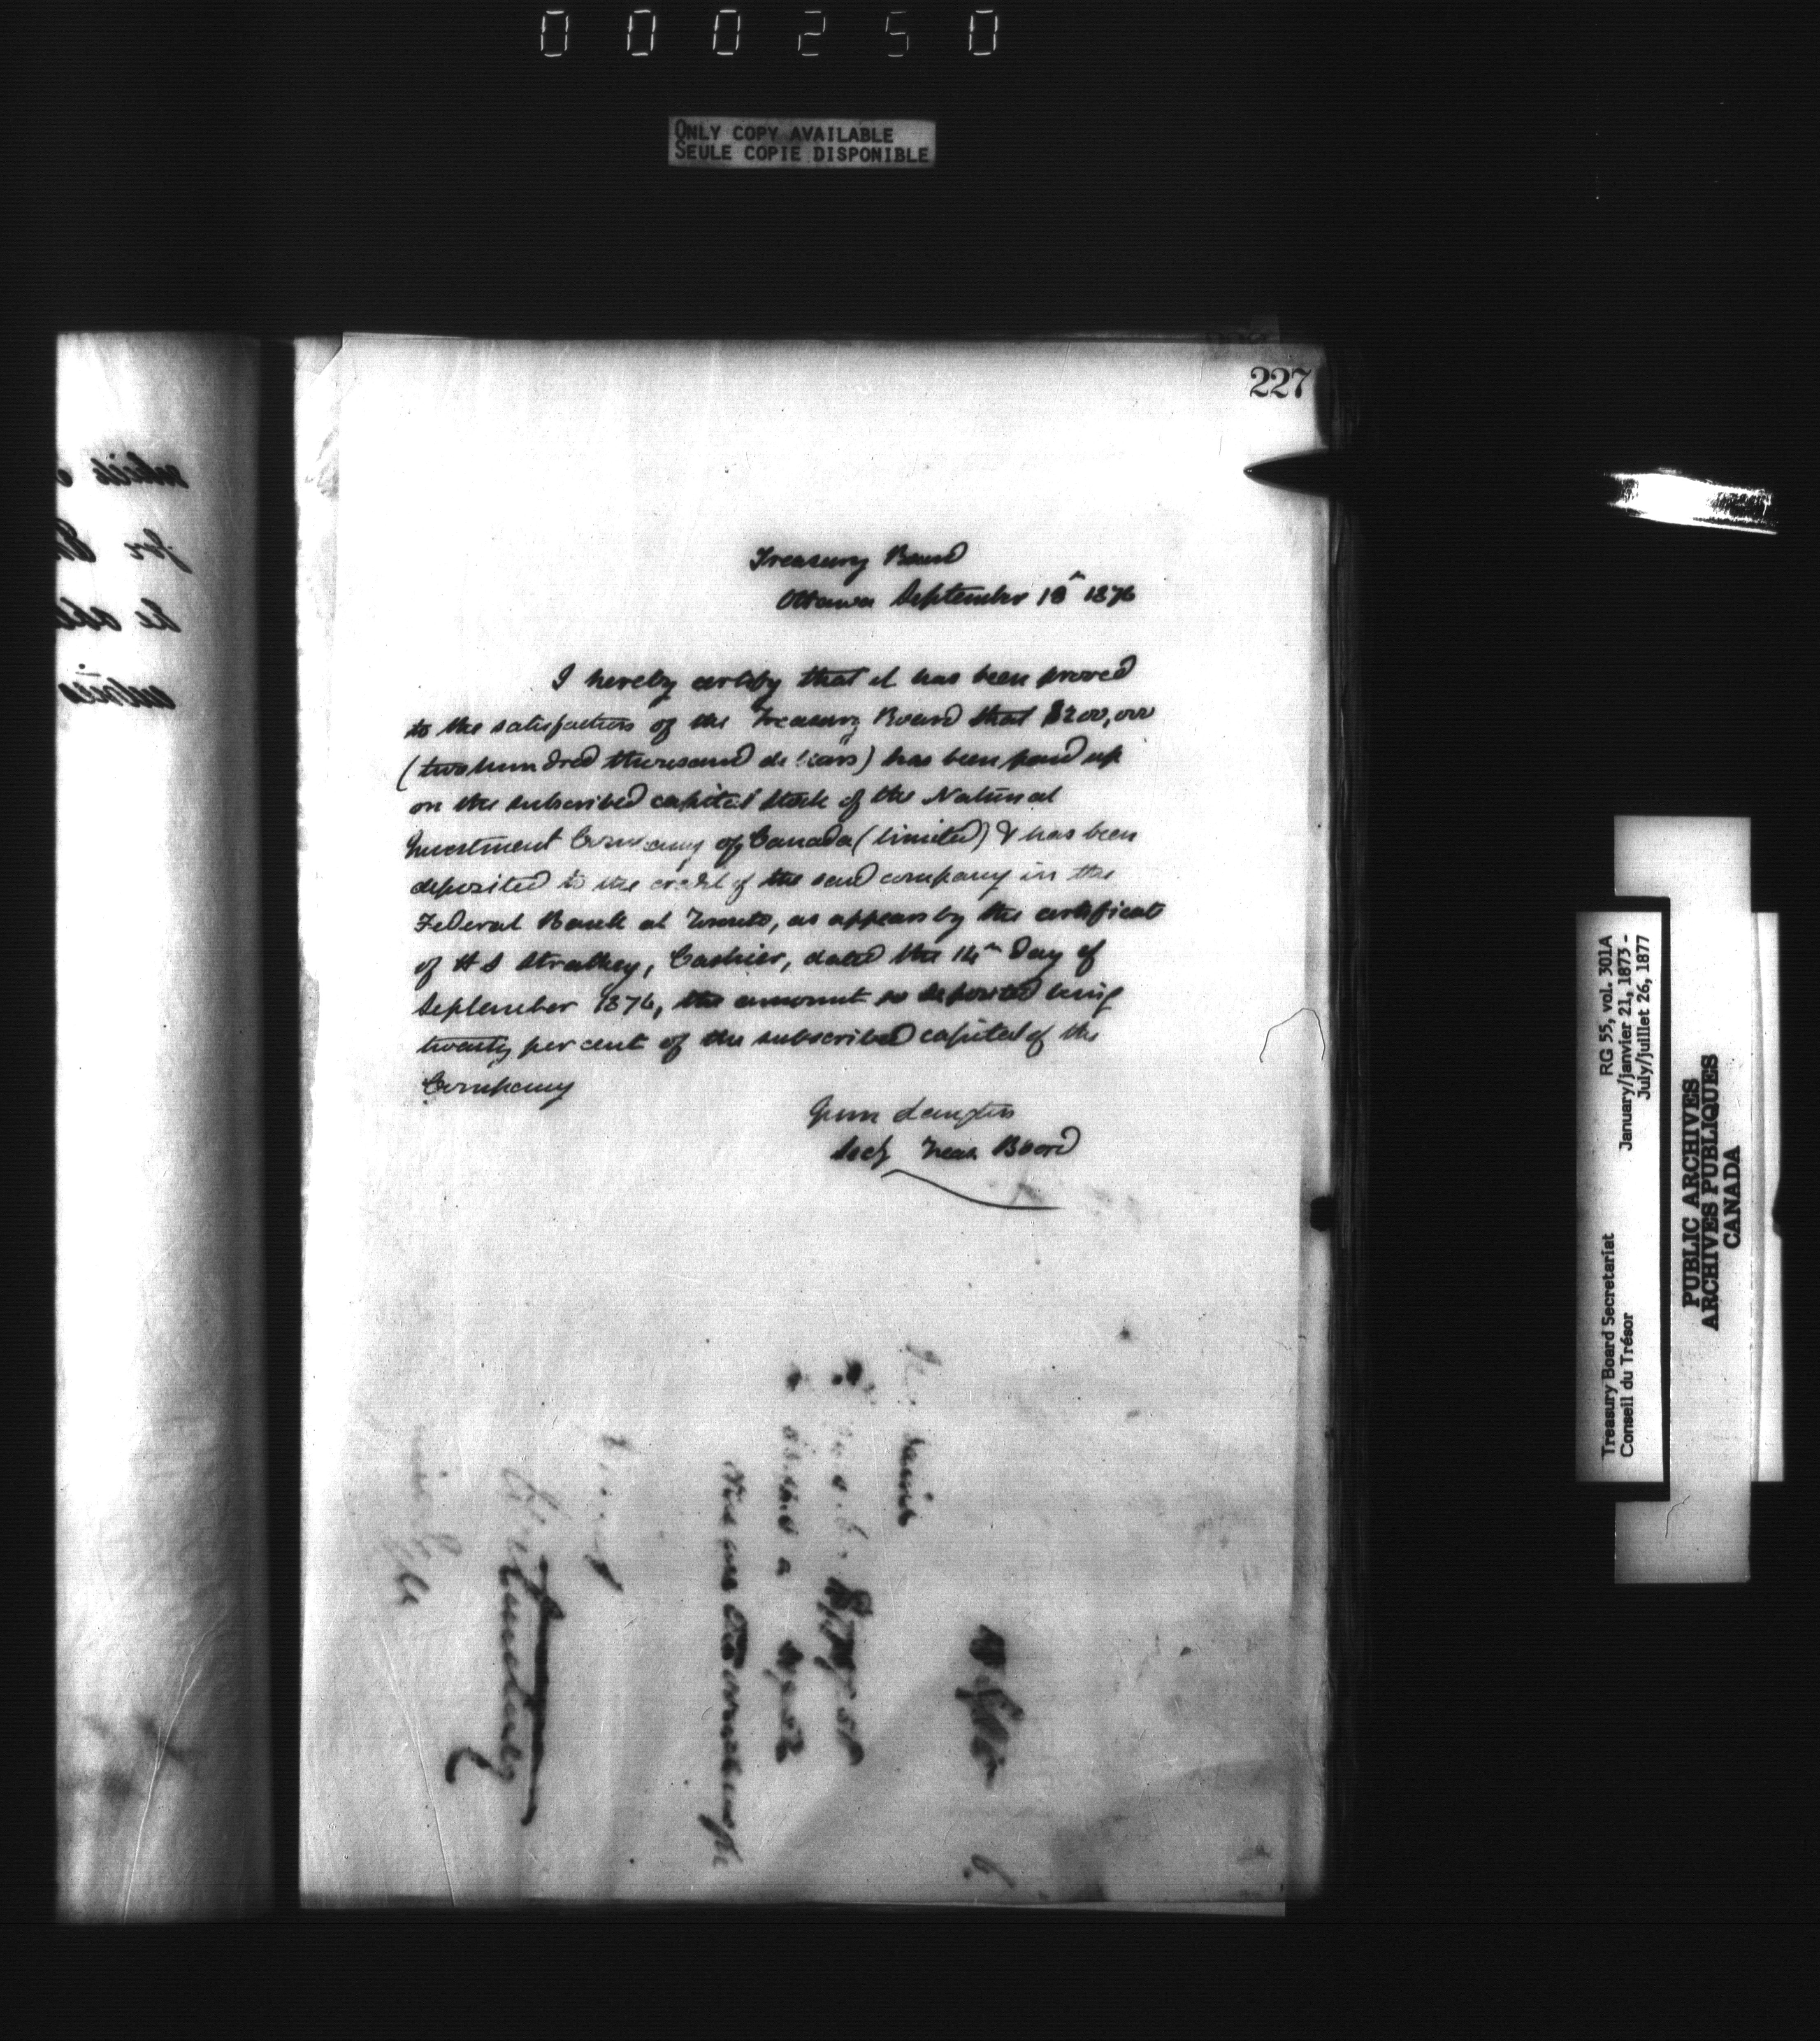 000250
ONLY COPY AVAILABLE
SEULE COPIE DISPONIBLE
227
Treasury Board
Ottawa September 18th 1876
I hereby certify that it has been proved
to the satisfaction of the Treasury Board that $200,000
(two hundred thousand dollars) has been paid up
on the subscribed capital stock of the National
Investment Company of Canada (limited) & has been
deposited to the credit of the said company in the
Federal Bank at Toronto, as appears by the certificate
of H S Strathy, Cashier, dated the 14th day of
September 1876, the amount so deposited being
twenty per cent of the subscribed capital of the
Company
John Langton
Secy Treas Board
Treasury Board Secretariat RG 55, vol. 301A
Conseil du Trésor January/janvier 21, 1873 -
July/juillet 26, 1877
PUBLIC ARCHIVES
ARCHIVES PUBLIQUES
CANADA